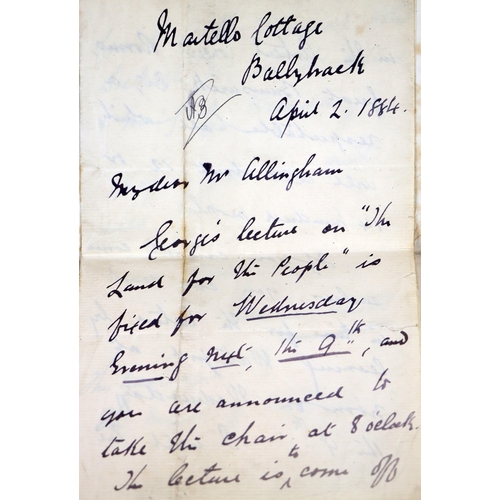 Martello Cottage
Ballyhack
April 2. 1884.
My dear Mr Allingham
George's lecture on "The
Land for the People" is
fixed for Wednesday
Evening next, the 9th, and
you are announced to
take the chair at 8 o'clock.
The lecture is to come off